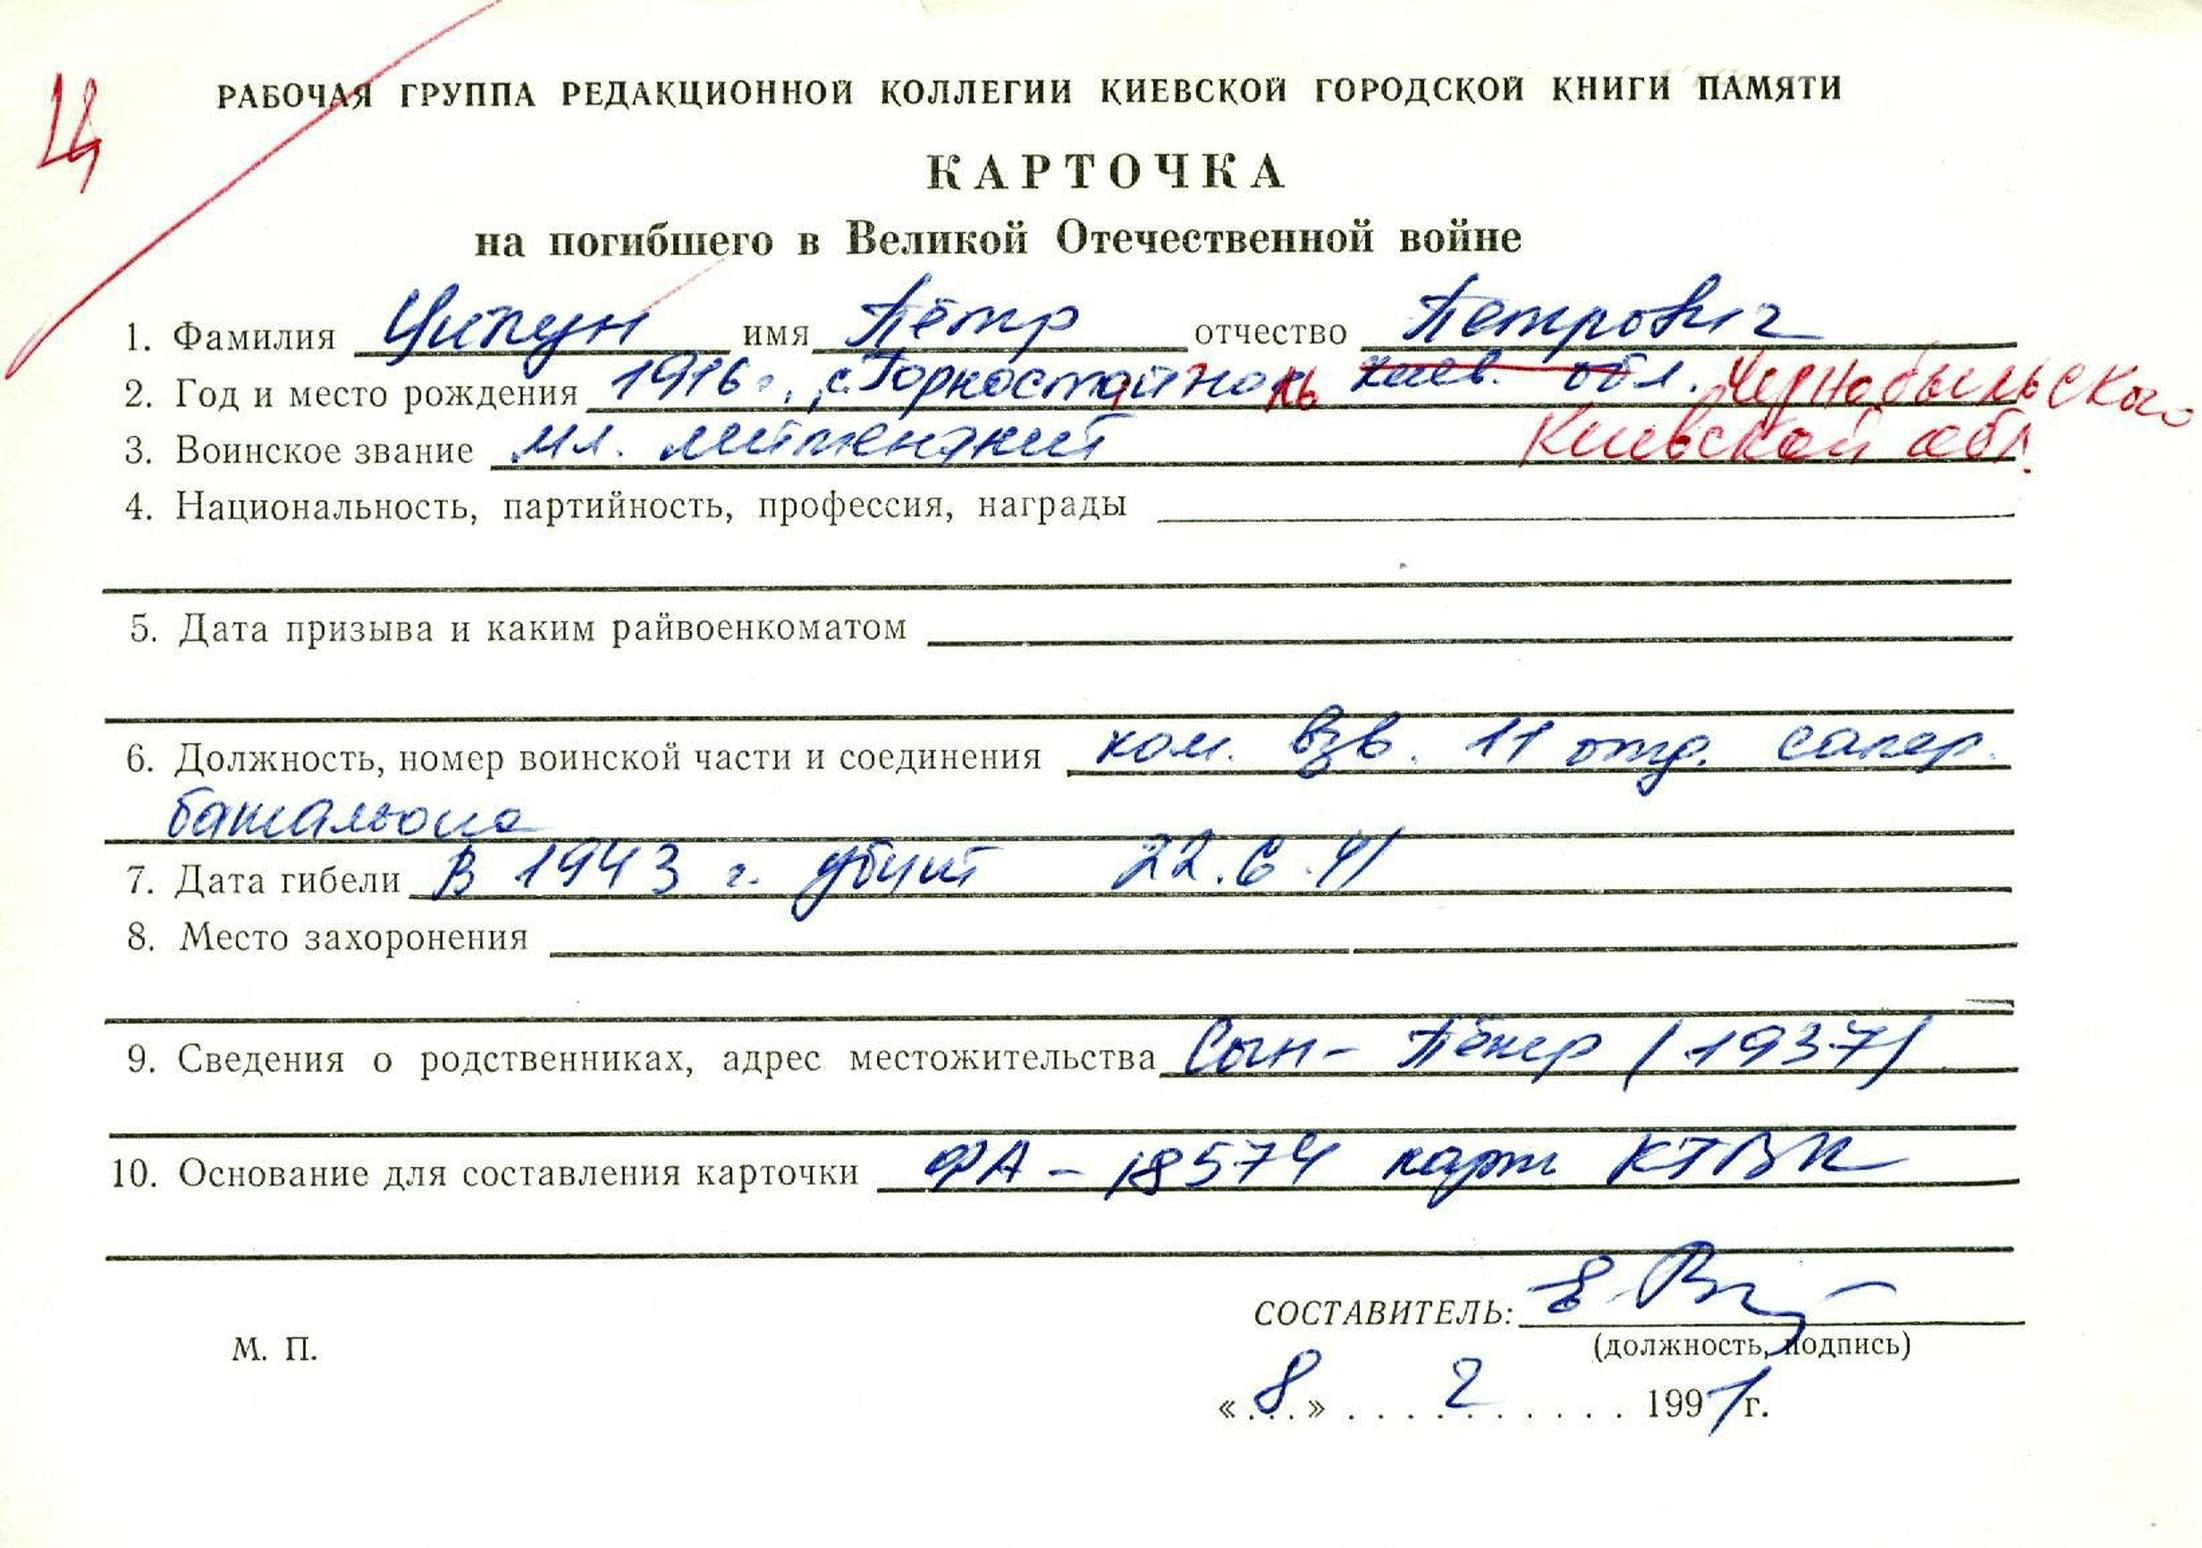 Ц
РАБОЧАЯ ГРУППА РЕДАКЦИОННОЙ КОЛЛЕГИИ КИЕВСКОЙ ГОРОДСКОЙ КНИГИ ПАМЯТИ
КАРТОЧКА
на погибшего в Великой Отечественной войне
1. Фамилия Ципун имя Пётр отчество Петрович
2. Год и место рождения 1916 г., с. киев. обл. Чернобыльского
Киевской обл.
3. Воинское звание мл. лейтенант
4. Национальность, партийность, профессия, награды
5. Дата призыва и каким райвоенкоматом
6. Должность, номер воинской части и соединения ком. взв. 11 отд. сапер.
батальона
7. Дата гибели В 1943 г. убит 22.6.41
8. Место захоронения
9. Сведения о родственниках, адрес местожительства Сын – Пётр (1937)
10. Основание для составления карточки ФА – 18574 карт
СОСТАВИТЕЛЬ:
(должность, подпись)
М. П.
«8» 2 1991 г.